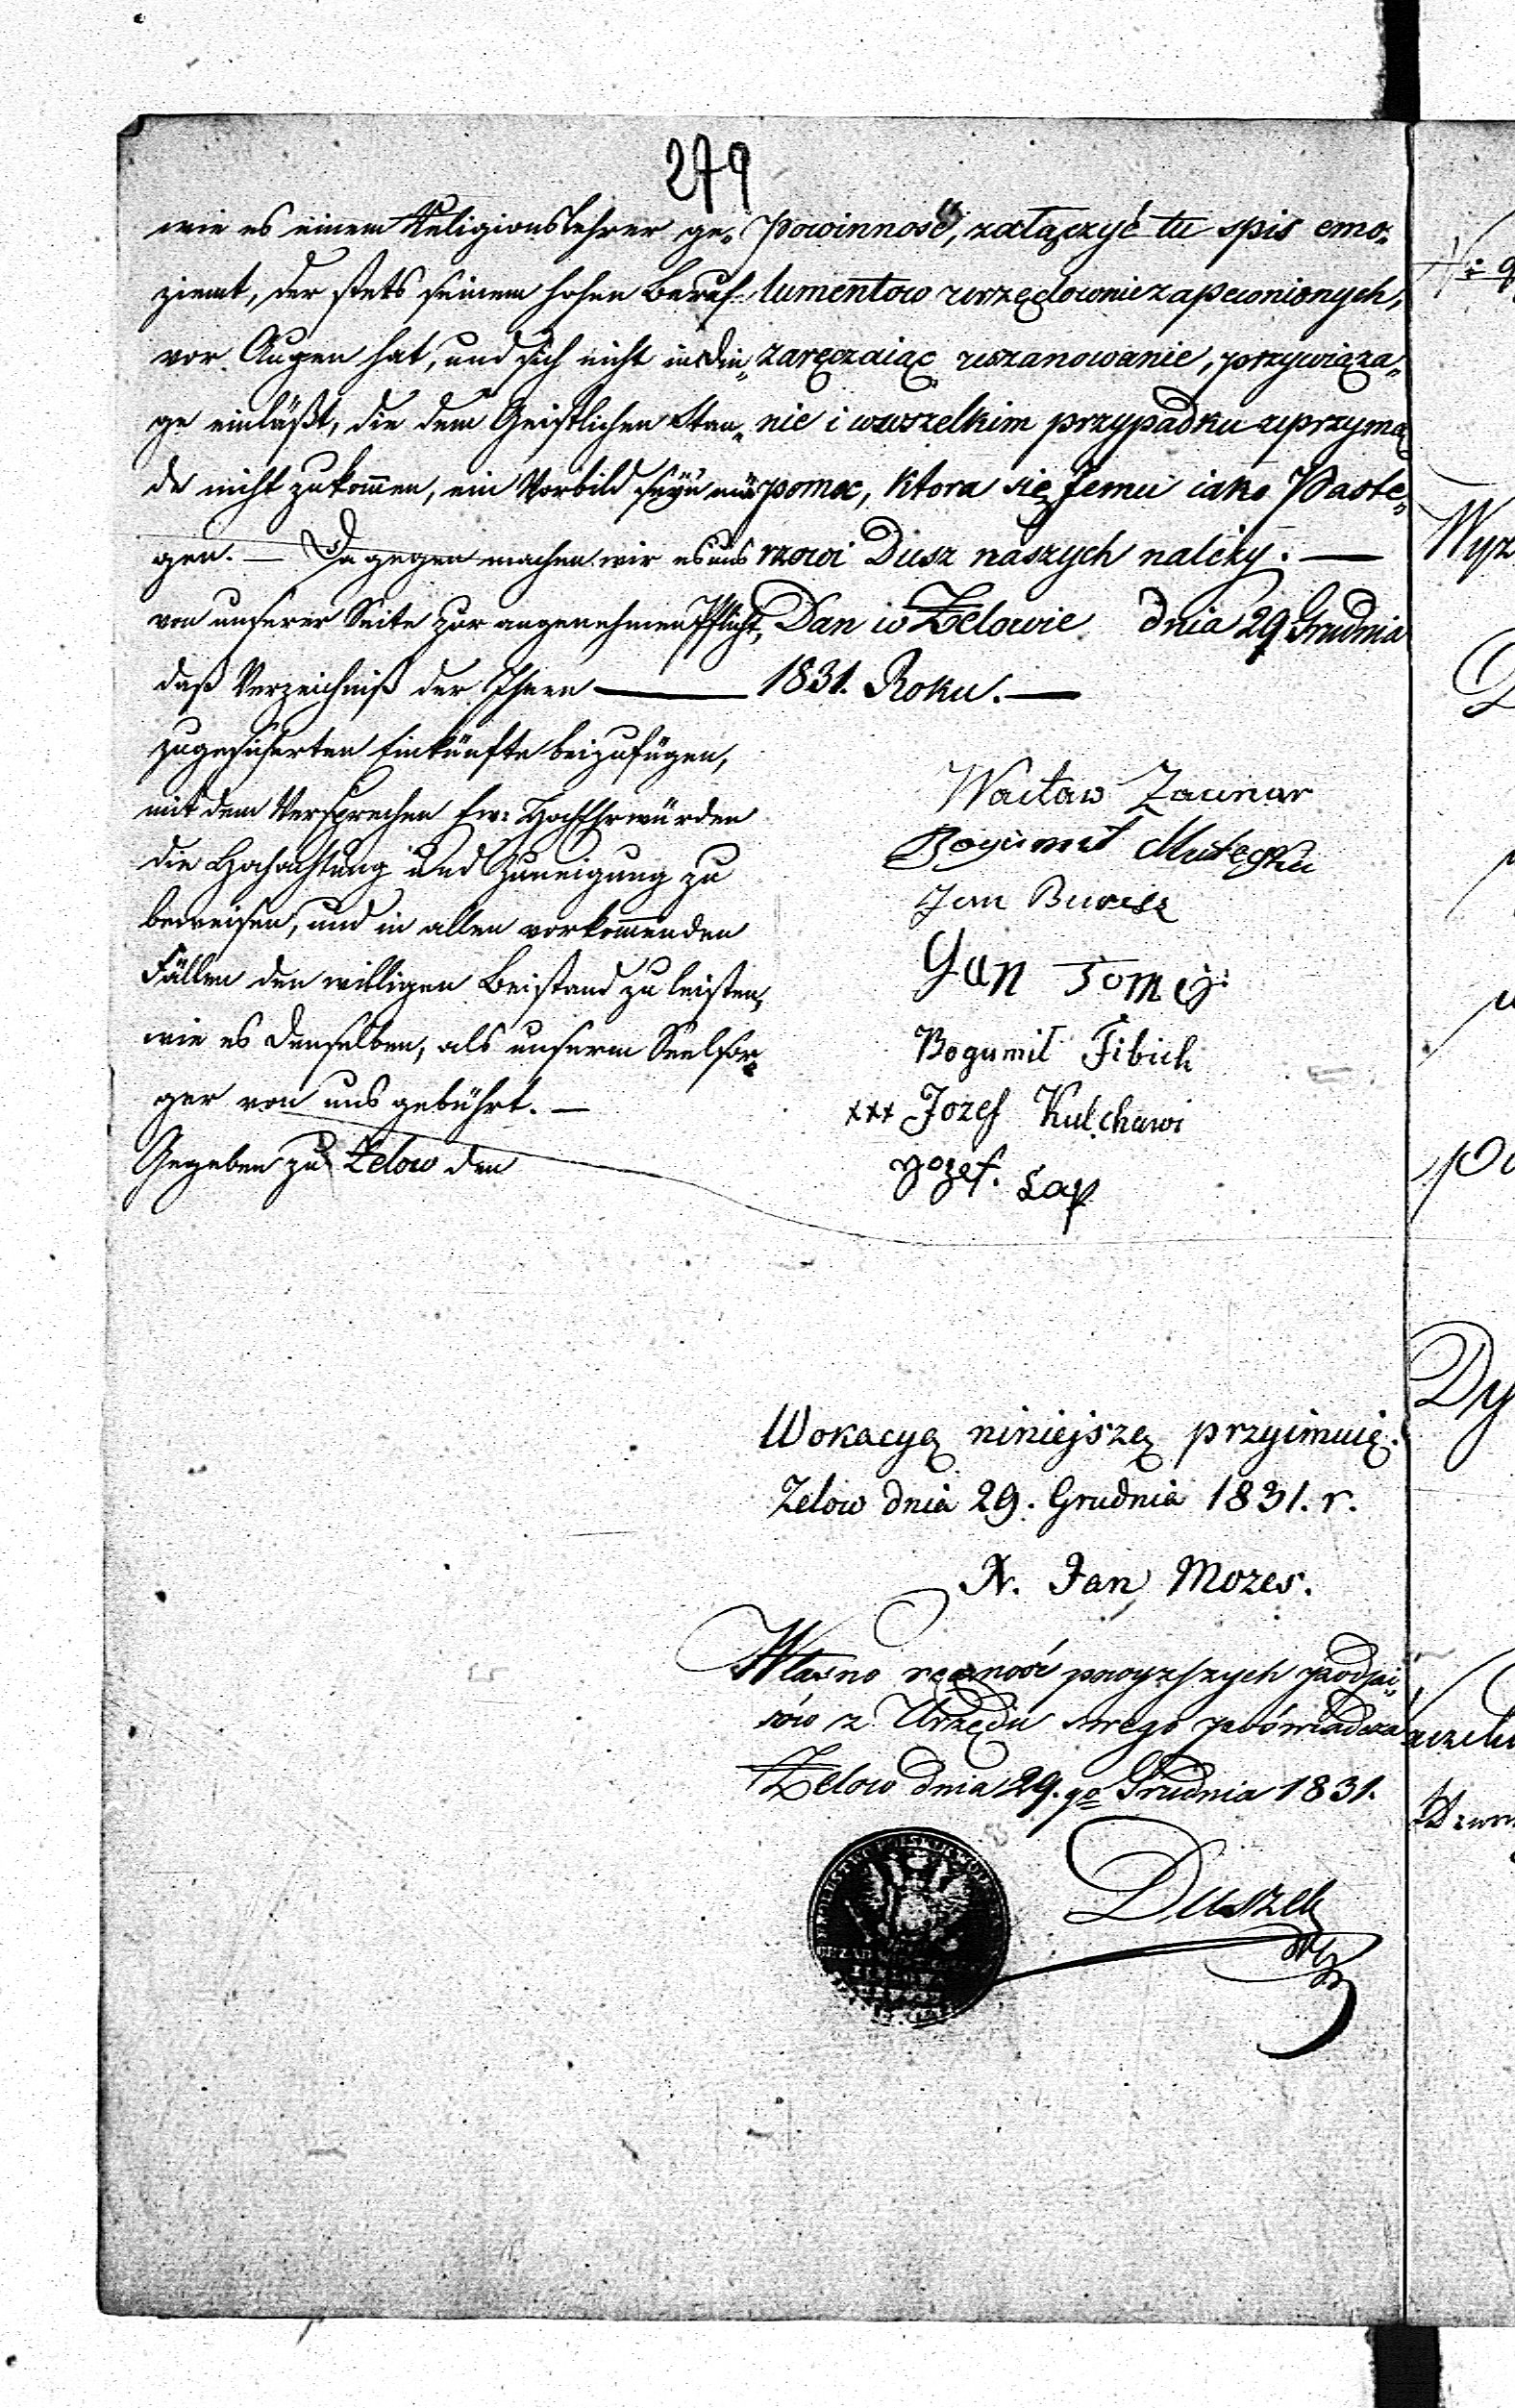 279
wie es einem Religionslehrer ge-
ziemt, der stets seinen hohen Beruf
vor Augen hat, und sich nicht in Din„
ge einläßt, die dem Geistlichen Stan„
de nicht zukom̄en, ein Vorbild seyn mö
gen. — Dagegen machen wir es uns
von unserer Seite zur angenehmen Pflicht,
daß Verzeichniß der Ihnen —
zugesicherten Einkünfte beizufügen,
mit dem Versprechen Ew: HochEhrwürden
die Hochachtung und Zuneigung zu
beweisen, und in allen vorkom̄enden
Fällen den willigen Beistand zu leisten,
wie es denselben, als unserm Seelsor„
ger von uns gebührt. —
Gegeben zu Zelow den
powinność, załączyć tu spis emo„
lumentow urzędownie zapewnionych,
zaręczaiąc uszanowanie, przywiąza„
nie i wwszelkim przypadku uprzymą
pomoc, ktora się Jemu iako Paste„
rzowi Dusz naszych należy. —
Dan w Zelowie dnia 29 Grudnia
1831. Roku. —
Wacław Zaunar
Bogumił
Jan Buresz
Jan Tomeš
Bogumił Fibich
xxx Jozef Kulchawi
Jozef. Sap
Wokacyą niniejszą przyimuię.
Zelow dnia 29. Grudnia 1831. r.
X. Jan Mozes.
Własno ręczność powyzszych podpi„
sów z Urzędu swego poświadcza
Zelow dnia 29.go Grudnia 1831.
Duszek